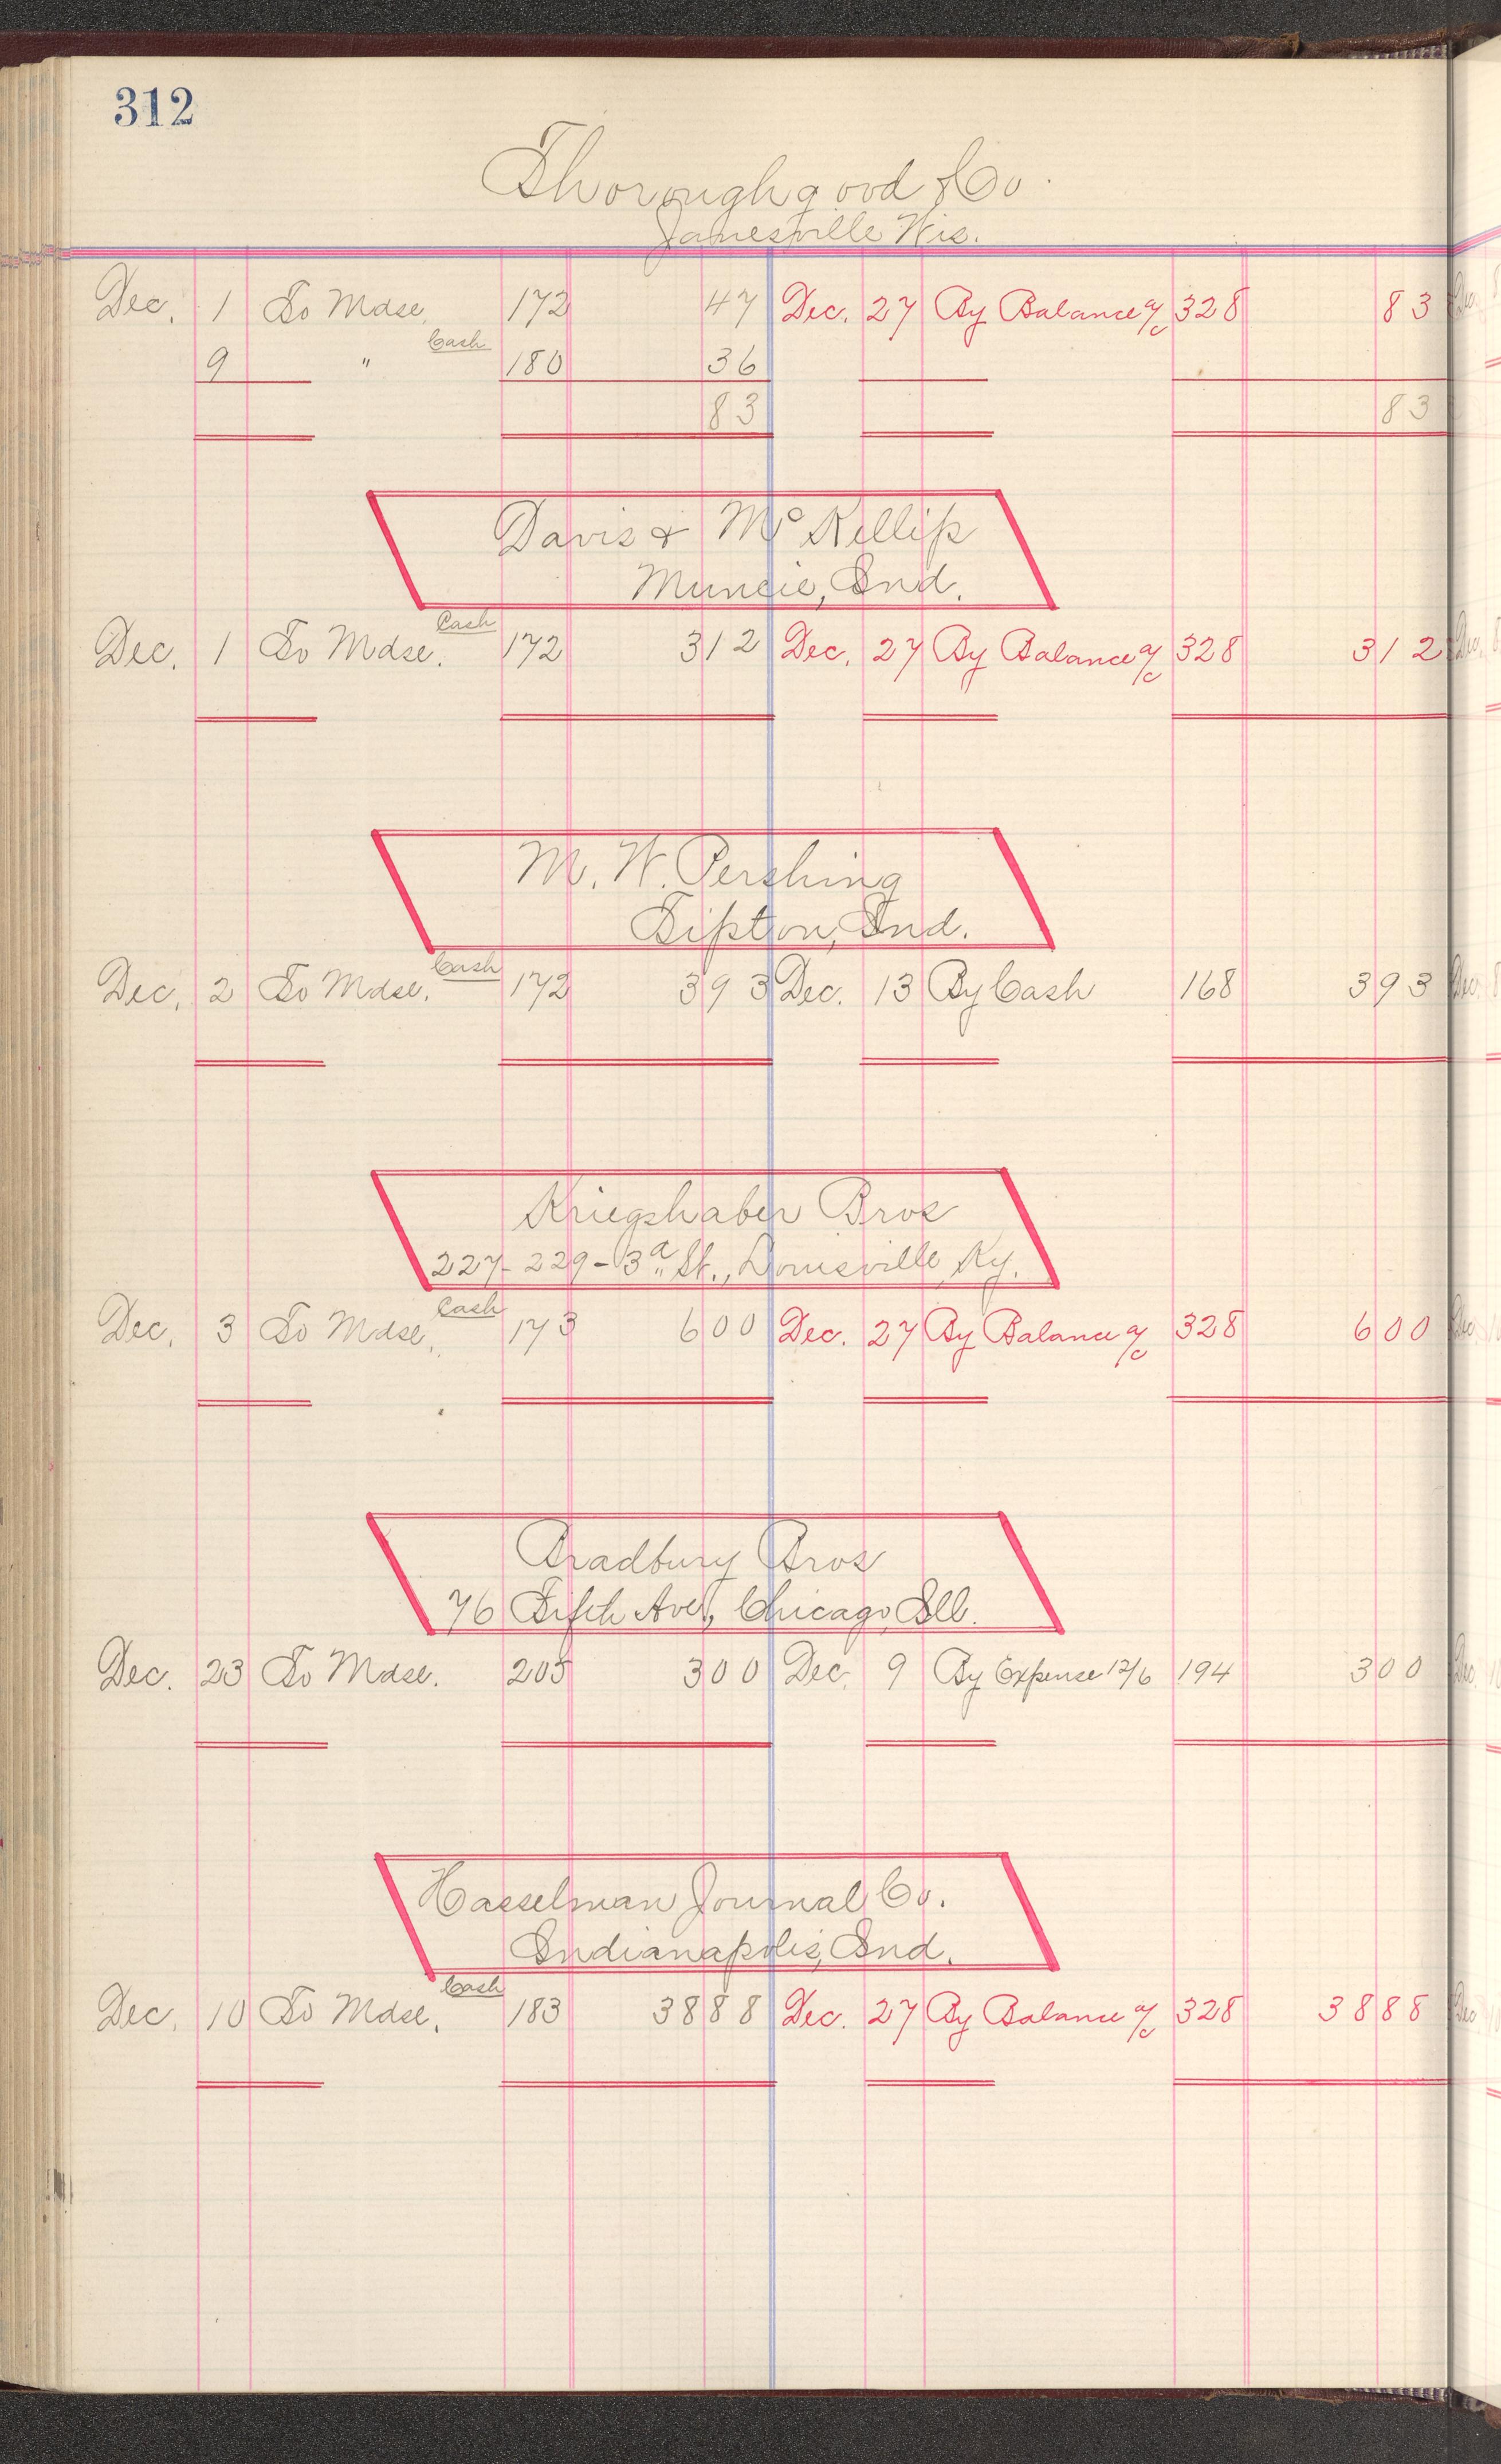 312
Thoroughgood & Co.
Janesville Wis.
Dec. 1 To Mdse. 172 47 Dec. 27 By Balance a/c 328 83
Cash
9 " 180 36
83 83
Davis & McKellip
Muncie, Ind.
Cash
Dec. 1 To Mdse. 172 312 Dec. 27 By Balance a/c 328 312
M. W. Pershing
Tipton, Ind.
Cash
Dec. 2 To Mdse. 172 393 Dec. 13 By Cash 168 393
Kriegshaber Bros
227-229-3d St., Louisville, Ky.
Cash
Dec. 3 To Mdse. 173 600 Dec. 27 By Balance a/c 328 600
Bradbury Bros
76 Fifth Ave., Chicago, Ill.
Dec. 23 To Mdse. 205 300 Dec. 9 By Expense 12/6 194 300
Hasselman Journal Co.
Indianapolis, Ind.
Cash
Dec. 10 To Mdse. 183 3888 Dec. 27 By Balance a/c 328 3888